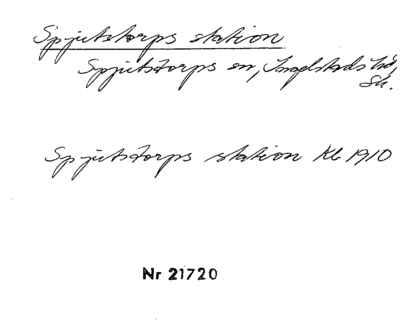 Spjutstorps station
Spjutstorps sn, Ingelstads hd,
Sk.
Spjutstorps station Kl 1910
Nr 21720